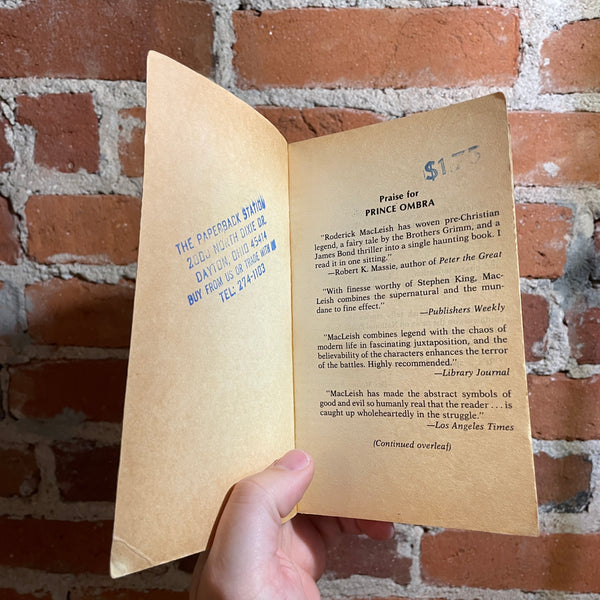 THE PAPERBACK STATION
2000 NORTH DIXIE DR.
DAYTON, OHIO 45414
BUY FROM US OR TRADE WITH
TEL: 274-1103
$1.75
Praise for
PRINCE OMBRA
"Roderick MacLeish has woven pre-Christian
legend, a fairy tale by the Brothers Grimm, and a
James Bond thriller into a single haunting book. I
read it in one sitting."
—Robert K. Massie, author of Peter the Great
"With finesse worthy of Stephen King, Mac-
Leish combines the supernatural and the mun-
dane to fine effect."
—Publishers Weekly
"MacLeish combines legend with the chaos of
modern life in fascinating juxtaposition, and the
believability of the characters enhances the terror
of the battles. Highly recommended."
—Library Journal
"MacLeish has made the abstract symbols of
good and evil so humanly real that the reader . . . is
caught up wholeheartedly in the struggle."
—Los Angeles Times
(Continued overleaf)